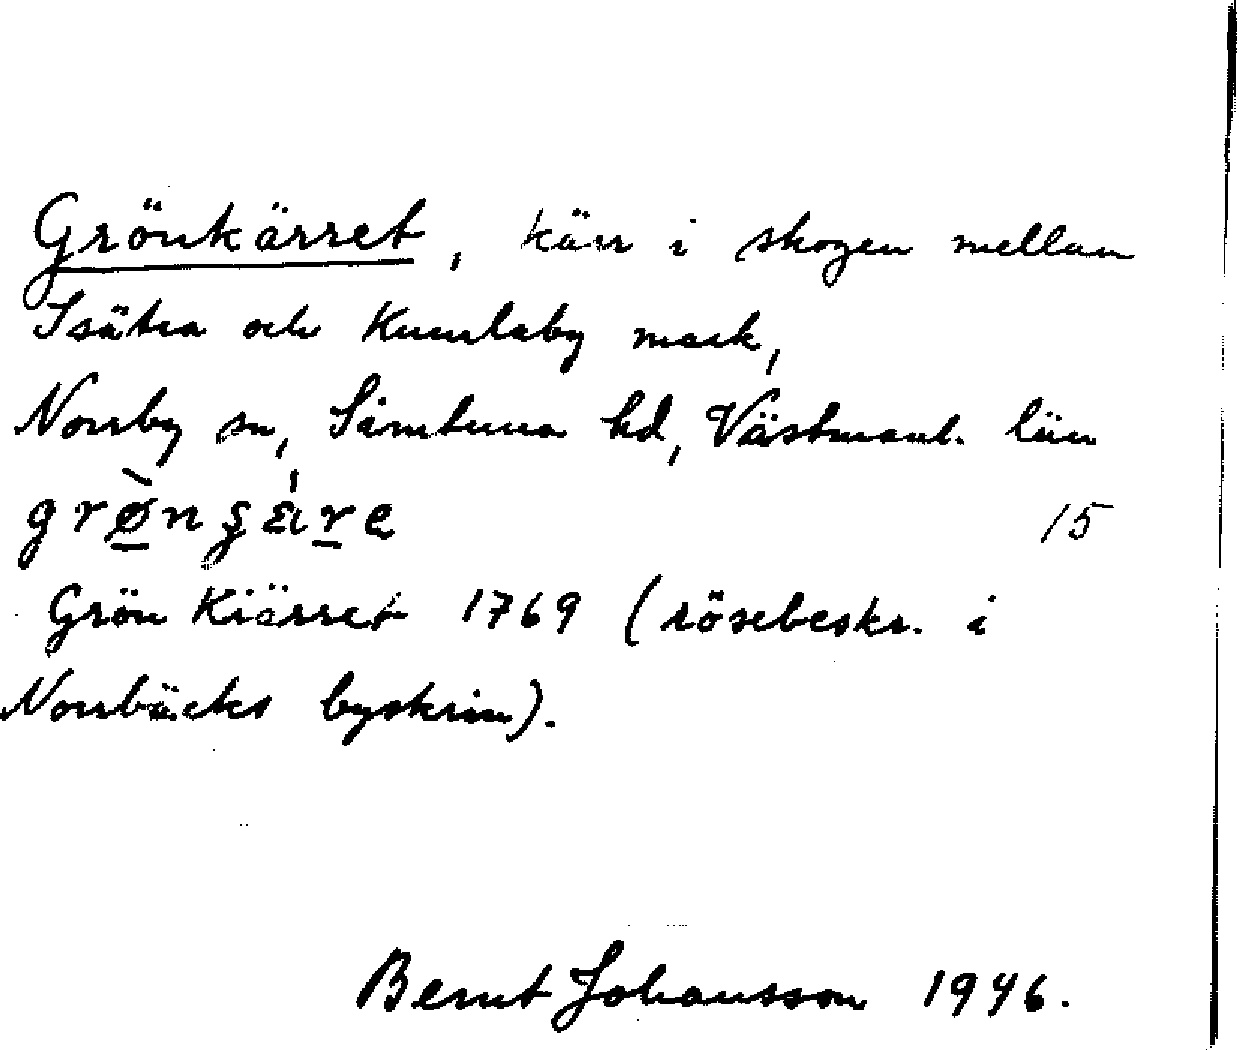 Grönkärret, kärr i skogen mellan
Isätra och Kumlaby mark,
Norrby sn, Simtuna hd, Västmanl. län
grø̀nşὰre 15
Grön Kiärret 1769 (rösebeskr. i
Norrbäcks byskrin).
Bernt Johansson 1946.